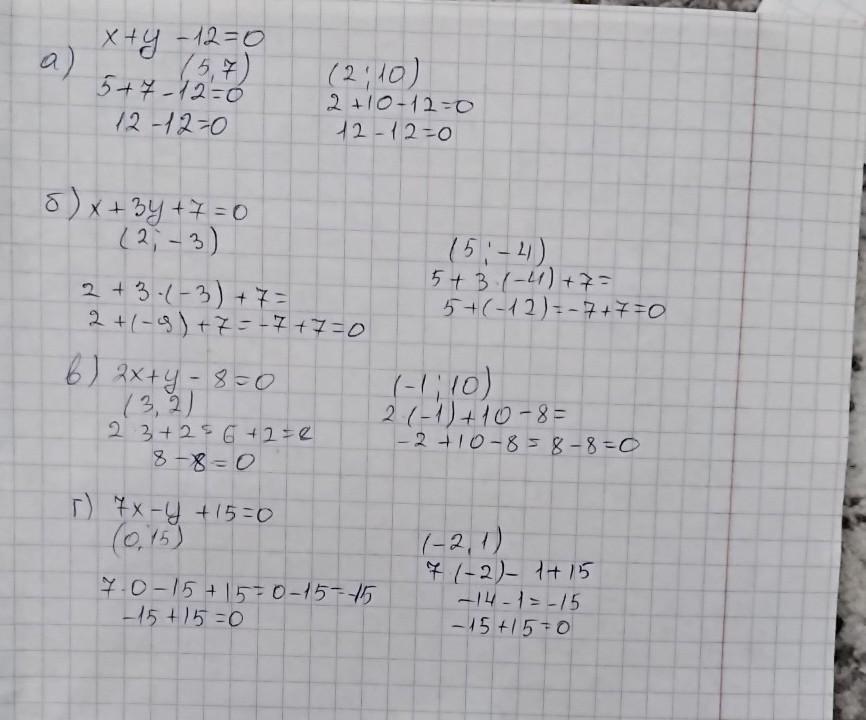 x+y-12=0
а) (5,7) (2;10)
5+7-12=0 2+10-12=0
12-12=0 12-12=0
б) x+3y+7=0
(2;-3) (5;-4)
2+3·(-3)+7= 5+3·(-4)+7=
2+(-9)+7=-7+7=0 5+(-12)=-7+7=0
в) 2x+y-8=0 (-1;10)
(3,2) 2·(-1)+10-8=
2·3+2=6+2= -2+10-8=8-8=0
8-8=0
г) 7x-y+15=0
(0,15) (-2,1)
7·0-15+15=0-15=-15 7·(-2)-1+15
-15+15=0 -14-1=-15
-15+15=0